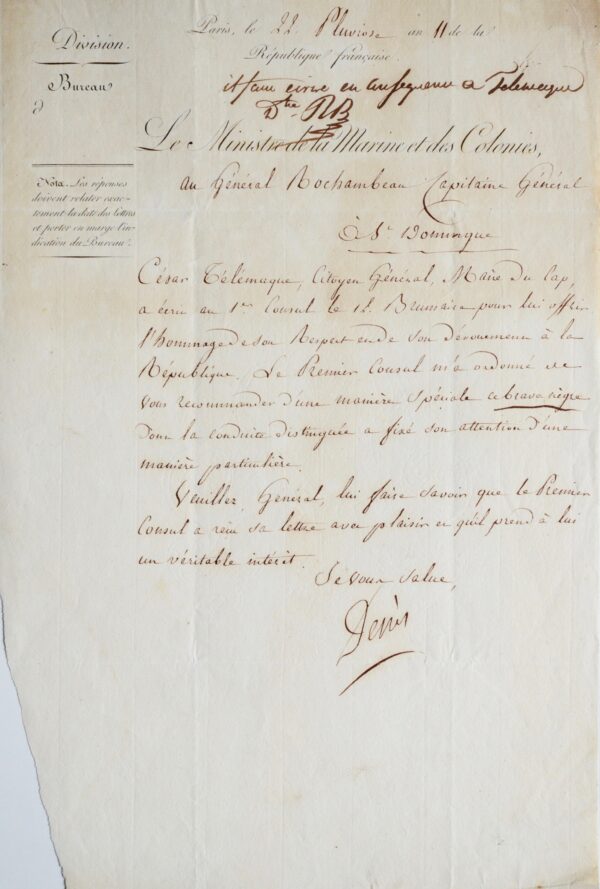 Division.
Bureau
Nota. Les réponses
doivent relater exac-
tement la date des lettres
et porter en marge l'in-
dication du Bureau.
Paris, le 22 Pluviose an 11 de la
République française.
il faut écrire en conséquence a Telemaque
Dte RB
Le Ministre de la Marine et des Colonies,
au Général Rochambeau Capitaine Général
à St. Domingue
César Télémaque, Citoyen Général, Maire du Cap,
a écrit au 1er Consul le 12 Brumaire pour lui offrir
l'hommage de son Respect et de son dévouement à la
République. Le Premier Consul m'a ordonné de
vous recommander d'une manière spéciale ce brave nègre
dont la conduite distinguée a fixé son attention d'une
manière particulière.
Veuillez, Général, lui faire savoir que le Premier
Consul a reçu sa lettre avec plaisir et qu'il prend à lui
un véritable intérêt.
Je vous salue,
Decrès